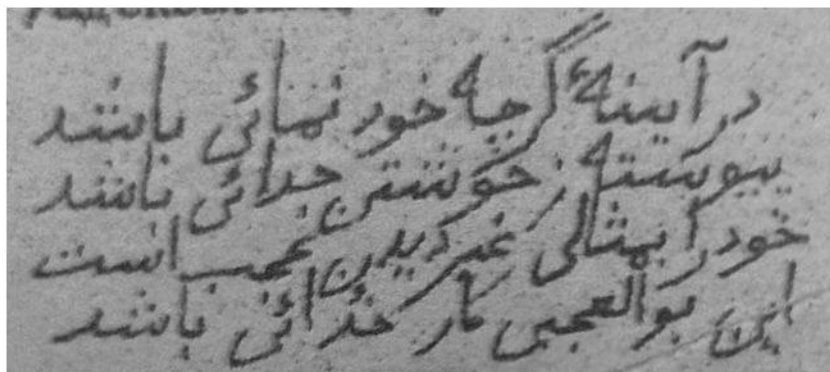 در آیینهٔ گرچه خود نمائی باشد
پیوسته ز خوشتن جدائی باشد
خود را بمثالی غیر دیدن عجب است
این بوالعجبی کار خدائی باشد